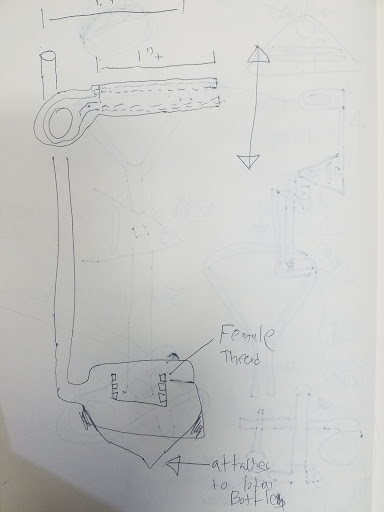 1"+
Female
Thread
attached
to water
Bottle